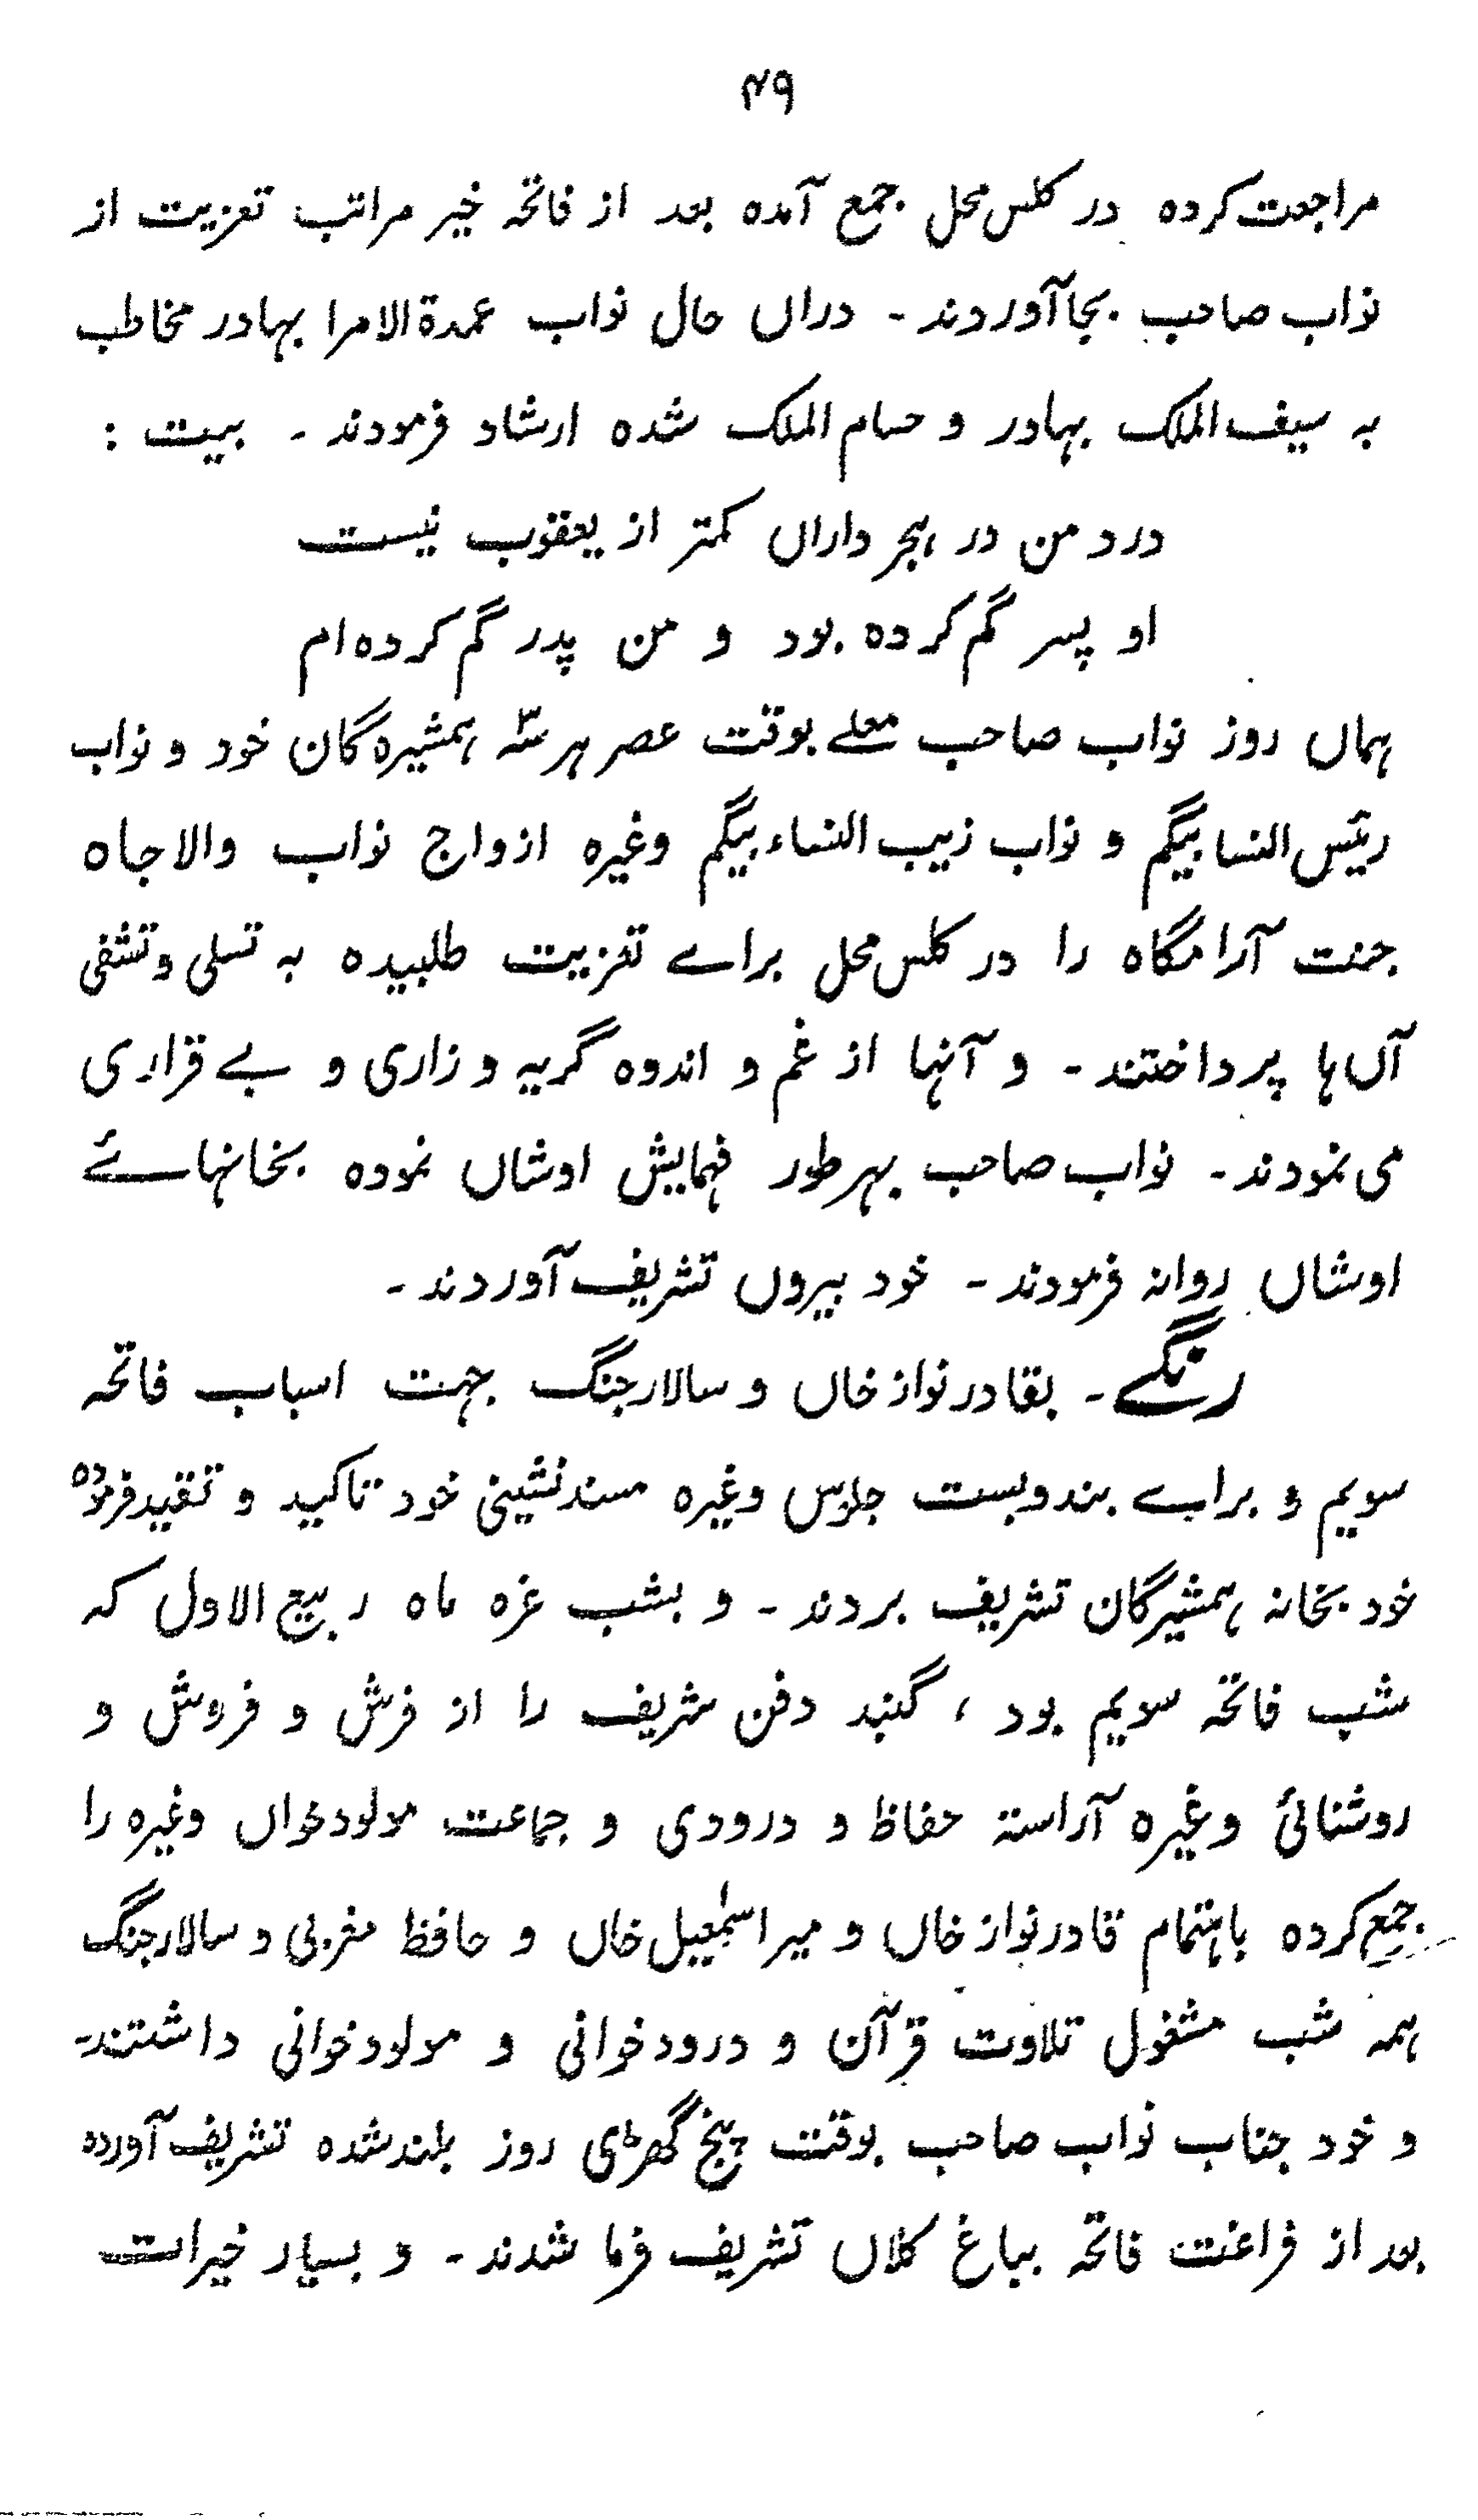 ۴۹
مراجعت کرده در کلس محل جمع آمده بعد از فاتحہ خیر مراتب تعزیت از
نواب صاحب بجا آوردند ۔ دراں حال نواب عمدۃ الامرا بہادر مخاطب
بہ سیف الملک بہادر و حسام الملک شده ارشاد فرمودند ۔ بیت :
درد من در ہجر داراں کمتر از یعقوب نیست
او پسر گم کرده بود و من پدر گم کرده ام
ہماں روز نواب صاحب معلے بوقت عصر ہر سہ ہمشیره گان خود و نواب
رئیس النسا بیگم و نواب زیب النساء بیگم وغیره ازواج نواب والا جاه
جنت آرامگاه را در کلس محل براے تعزیت طلبیده بہ تسلی و تشفی
آں ہا پرداختند ۔ و آنہا از غم و اندوه گریہ و زاری و بے قراری
می نمودند ۔ نواب صاحب بہر طور فہمایش اوشاں نموده بخانہائے
اوشاں روانہ فرمودند ۔ خود بیروں تشریف آوردند ۔
رنگے ۔ بقادر نواز خاں و سالار جنگ جہت اسباب فاتحہ
سویم و براے بندوبست جلوس وغیره مسند نشینی خود تاکید و تقید فرموده
خود بخانہ ہمشیرگان تشریف بردند ۔ و بشب غره ماه ربیع الاول کہ
شب فاتحہ سویم بود ، گنبد دفن شریف را از فرش و فروش و
روشنائی وغیره آراستہ حفاظ و درودی و جماعت مولود خواں وغیره را
جمع کرده باہتمام قادر نواز خاں و میر اسمٰعیل خاں و حافظ مغربی و سالار جنگ
ہمہ شب مشغول تلاوت قرآن و درود خوانی و مولود خوانی داشتند۔
و خود جناب نواب صاحب بوقت پنج گھڑی روز بلند شده تشریف آورده
بعد از فراغت فاتحہ بباغ کلاں تشریف فرما شدند ۔ و بسیار خیرات